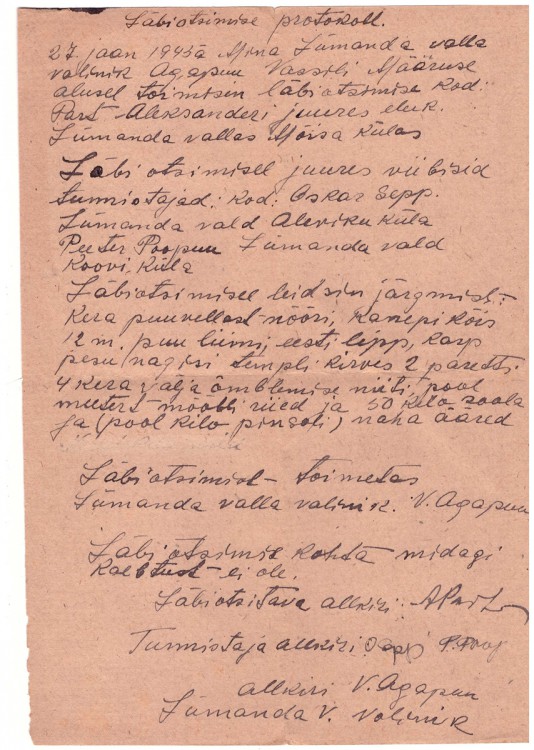 Läbiotsimise protokoll.
27. jaan 1945a Mina Lümanda valla
volinik Agapuu Vassili Määruse
alusel toimisin läbiotsimise kod:
Part Aleksanderi juures eluk.
Lümanda vallas Mõisa külas
Läbiotsimisel juures viibisid
tunnistajad: kod: Oskar Sepp.
Lümanda vald Aleviku küla
Peeter Poopuu Lümanda vald
Koovi küla
Läbiotsimisel leidsin järgmist:
kera puuvillast nööri, kanepi köis
12 m. puu liimi, eesti lipp, karp
pesu nagisi templi kirves 2 paretti
4 kera valja õmblemise niiti, pool
meetert mööbli riied ja 50 kilo soola
ja (pool kilo pinsoli) naha ääred
Läbiotsimist toimetas
Lümanda valla volinik. V. Agapuu
Läbiotsimise kohta midagi
kaebtust ei ole.
Läbiotsitava allkiri: APart
Tunnistaja allkiri Sepp P. Poop
allkiri V. Agapuu
Lümanda V. volinik